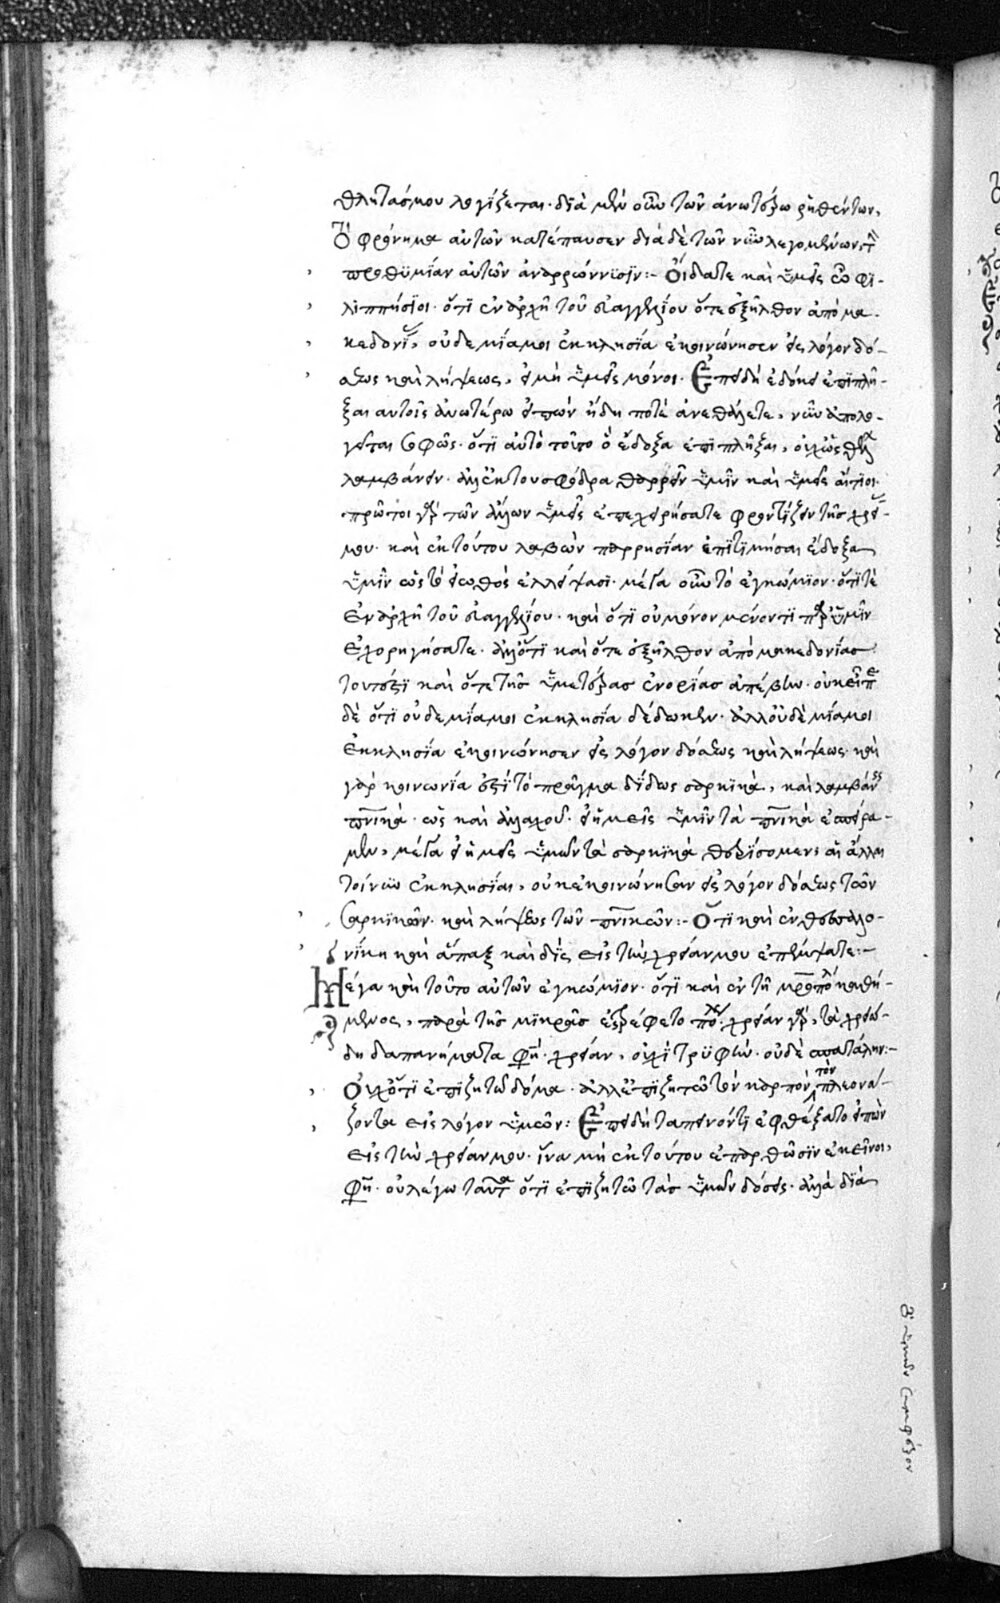 θλητάς μου λογίζεται· διὰ μὲν οὖν τῶν ἀνωτέρω ῥηθέντων,
τὸ φρόνημα αὐτῶν κατέπαυσεν· διὰ δὲ τῶν νῦν λεγομένων, τὴν
προθυμίαν αὐτῶν ἀναρρώννυσιν:- Οἴδατε καὶ ὑμεῖς ὦ Φι-
λιππήσιοι· ὅτι ἐν ἀρχῇ τοῦ εὐαγγελίου ὅτε ἐξῆλθον ἀπὸ Μα-
κεδονίας, οὐδεμία μοι ἐκκλησία ἐκοινώνησεν εἰς λόγον δό-
σεως καὶ λήψεως, εἰ μὴ ὑμεῖς μόνοι· Ἐπειδὴ ἐδόκει ἐπιπλῆ-
ξαι αὐτοῖς ἀνωτέρω εἰπὼν ἤδη ποτὲ ἀνεθάλετε, νῦν ἀπολο-
γεῖται σοφῶς· ὅτι αὐτὸ τοῦτο ὃ ἔδοξα ἐπιπλῆξαι, οὐχ ὡς θέλων
λαμβάνειν· ἀλλ' ἐκ τοῦ σφόδρα θαρρεῖν ὑμῖν καὶ ὑμεῖς αἴτιοι·
πρῶτοι γὰρ τῶν ἄλλων ὑμεῖς ἐπεχειρήσατε φροντίζειν τῆς χρεί-
μου· καὶ ἐκ τούτου λαβὼν παρρησίαν ἐπιτιμῆσαι ἔδοξα
ὑμῖν ὡς τὸ εἰωθὸς ἐλλείψασι· μέγα οὖν τὸ ἐγκώμιον· ὅτι τε
ἐν ἀρχῇ τοῦ εὐαγγελίου· καὶ ὅτι οὐ μόνον μένοντι παρ' ὑμῖν
ἐχορηγήσατε· ἀλλ' ὅτι καὶ ὅτε ἐξῆλθον ἀπὸ Μακεδονίας
τουτέστι καὶ ὅτε τῆς ὑμετέρας ἐνορίας ἀπέβην· οὐκ εἶπε
δὲ ὅτι οὐδεμία μοι ἐκκλησία δέδωκεν· ἀλλ' οὐδεμία μοι
ἐκκλησία ἐκοινώνησεν εἰς λόγον δόσεως καὶ λήψεως· καὶ
γὰρ κοινωνία ἐστὶ τὸ πρᾶγμα διδοὺς σαρκικά, καὶ λαμβάνειν
πνικά· ὡς καὶ ἀλλαχοῦ· εἰ ἡμεῖς ὑμῖν τὰ πνικὰ ἐσπείρα-
μεν, μέγα εἰ ἡμεῖς ὑμῶν τὰ σαρκικὰ θερίσομεν; αἱ ἄλλαι
τοίνυν ἐκκλησίαι, οὐκ ἐκοινώνησαν εἰς λόγον δόσεως τῶν
σαρκικῶν· καὶ λήψεως τῶν πνικῶν:- Ὅτι καὶ ἐν Θεσσαλο-
νίκῃ καὶ ἅπαξ καὶ δὶς εἰς τὴν χρείαν μου ἐπέμψατε:-
Μέγα καὶ τοῦτο αὐτῶν ἐγκώμιον· ὅτι καὶ ἐν τῇ μητροπόλει καθή-
μενος, παρὰ τῆς μικρᾶς ἐτρέφετο πόλεως· χρείαν γὰρ, τὰ χρειώ-
δη δαπανήματα φησί· χρείαν, οὐχὶ τρυφὴν· οὐδὲ σπατάλην:-
Οὐχ ὅτι ἐπιζητῶ δόμα· ἀλλ' ἐπιζητῶ τὸν καρπὸν τὸν πλεονά-
ζοντα εἰς λόγον ὑμῶν: Ἐπειδὴ ταπεινόν τι ἐφθέγξατο εἰπὼν
εἰς τὴν χρείαν μου· ἵνα μὴ ἐκ τούτου ἐπαρθῶσιν ἐκεῖνοι,
φησί· οὐ λέγω ταῦτα ὅτι ἐπιζητῶ τὰς ὑμῶν δόσεις· ἀλλὰ διὰ